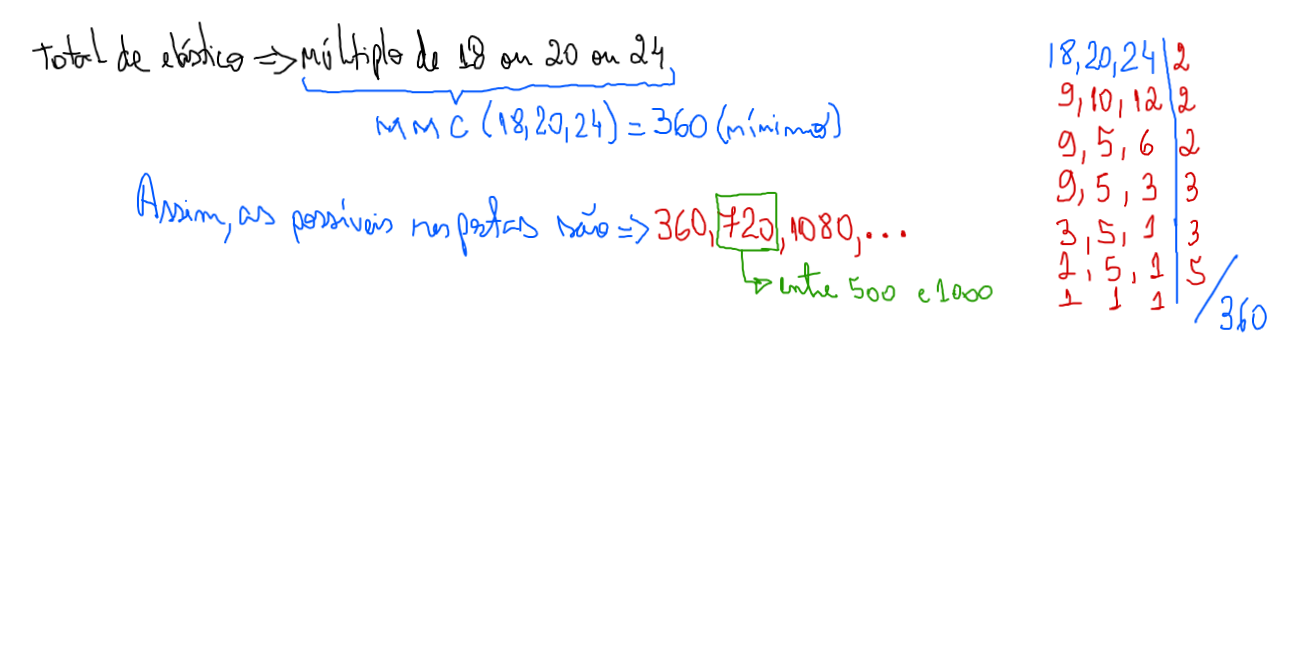 Total de elástico => múltiplo de 18 ou 20 ou 24
MMC (18,20,24) = 360 (mínimo)
Assim, as possíveis respostas são => 360, 720, 1080, ...
entre 500 e 1000
18, 20, 24 | 2
9, 10, 12 | 2
9, 5, 6 | 2
9, 5, 3 | 3
3, 5, 1 | 3
1, 5, 1 | 5
1 1 1 | / 360